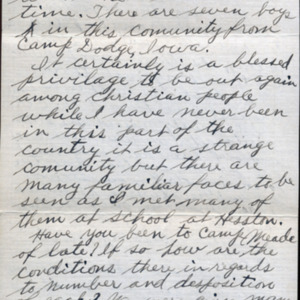 time. There are seven boys
in this comunity from
Camp Dodge, Iowa.
It certainly is a blessed
privilage to be out again
among christian people
while I have never been
in this part of the
country it is a strange
comunity but there are
many familiar faces to be
seen as I met many of
them at school at Hesston.
Have you been to Camp Meade
of late? If so how are the
conditions there in regards
to number and desposition